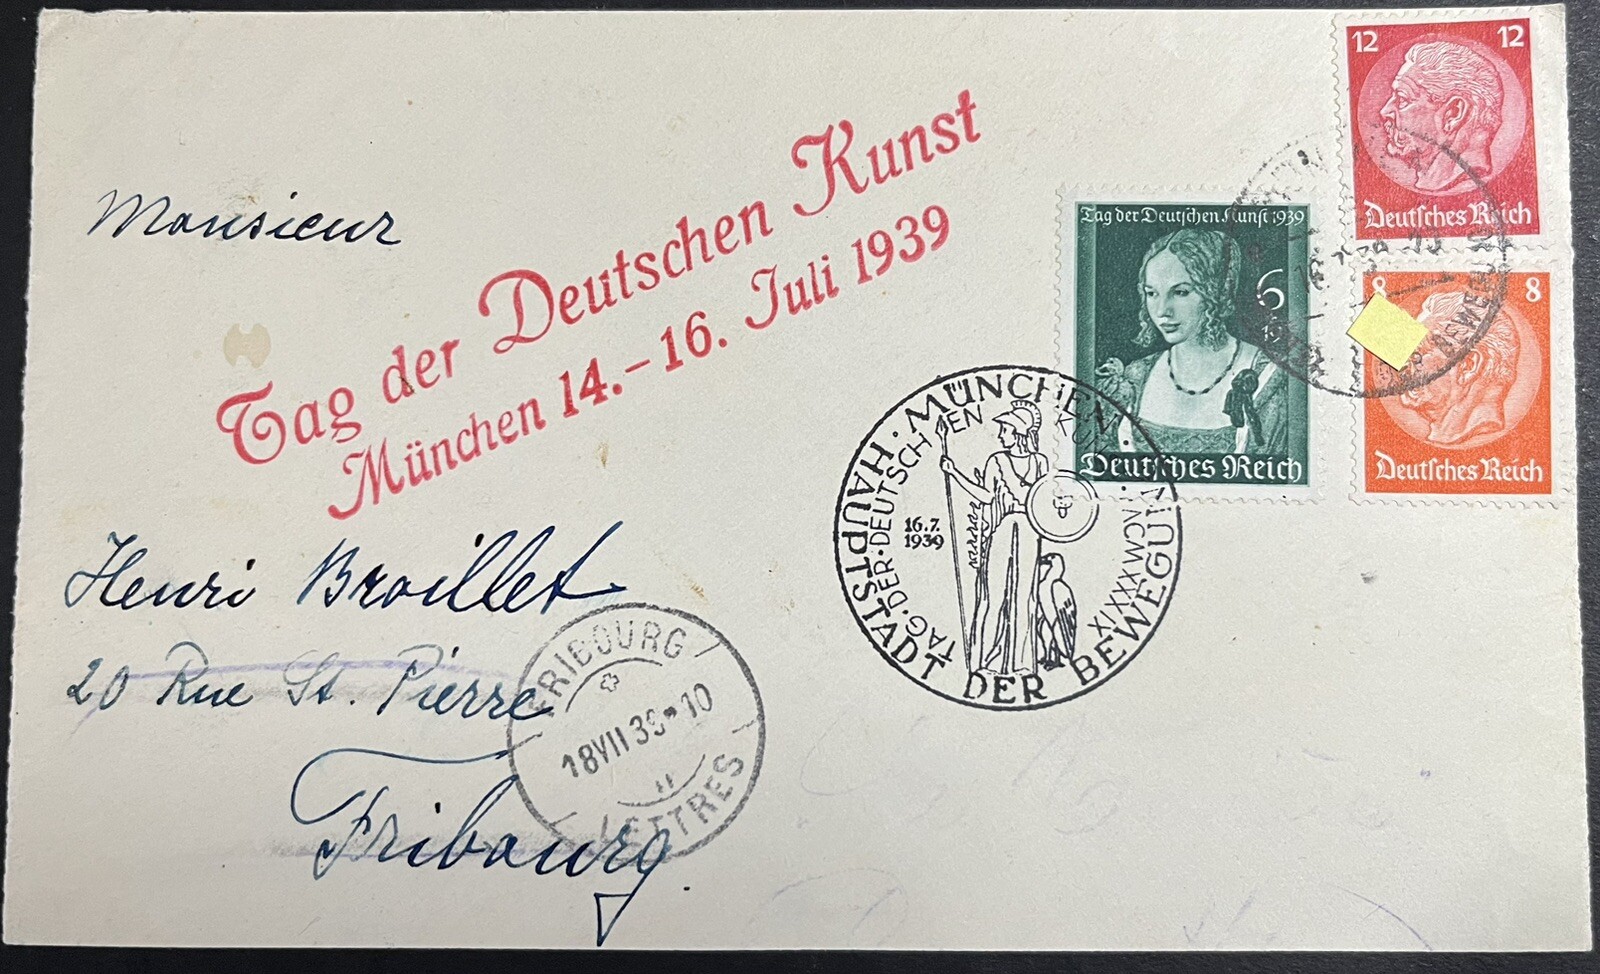 12 12
Deutsches Reich
8 8
Deutsches Reich
Tag der Deutschen Kunst 1939
6
Deutsches Reich
Tag der Deutschen Kunst
München 14.–16. Juli 1939
Monsieur
Henri Broillet
20 Rue St. Pierre
Fribourg
MÜNCHEN · HAUPTSTADT DER BEWEGUNG
TAG · DER · DEUTSCHEN
16.7.
1939
FRIBOURG
18 VII 39 · 10
LETTRES